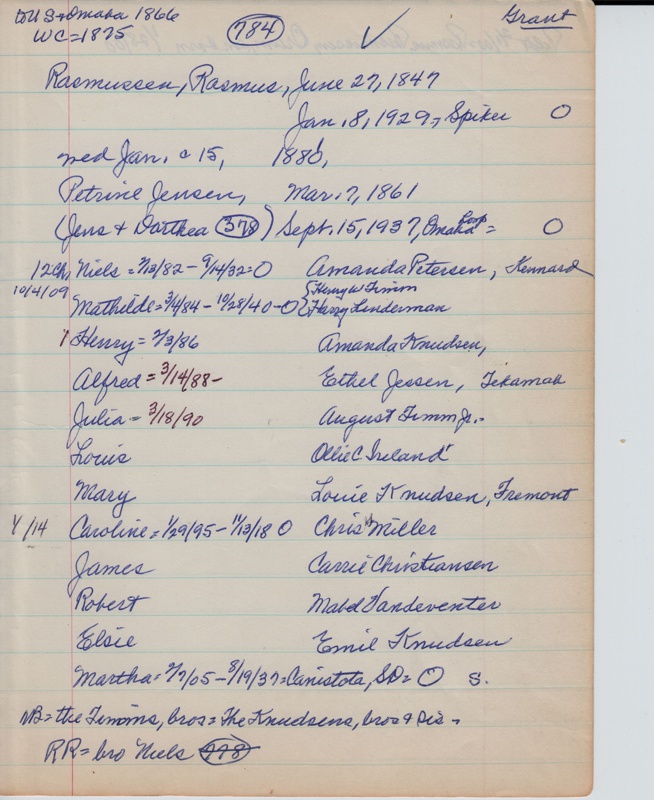 to U S & Omaha 1866
WC = 1875
784
Grant
Rasmussen, Rasmus, June 27, 1847
Jan. 8, 1929, Spiker O
wed Jan. c 15, 1880,
Petrine Jensen, Mar. 7, 1861
(Jens & Dorthea 378) Sept. 15, 1937, Omaha hosp = O
12 Ch, Niels = 2/13/82 - 9/14/32 = O Amanda Petersen, Kennard
10/4/09 Mathilde = 3/4/84 - 10/28/40 - O { Henry W Timm
Harry Linderman
1 Henry = 2/3/86 Amanda Knudsen,
Alfred = 3/14/88 - Ethel Jessen, Tekamah
Julia = 3/18/90 August Timm Jr. -
Louis Ollie C. Ireland
Mary Louie Knudsen, Fremont
4/14 Caroline = 1/29/95 - 11/13/18 O Chris Miller
James Carrie Christiansen
Robert Mabel Vandeventer
Elsie Emil Knudsen
Martha = 2/7/05 - 8/19/37 = Canistota, SD = O s.
NB = the Timms, bros = The Knudsens, bros & sis -
RR = bro Niels 778